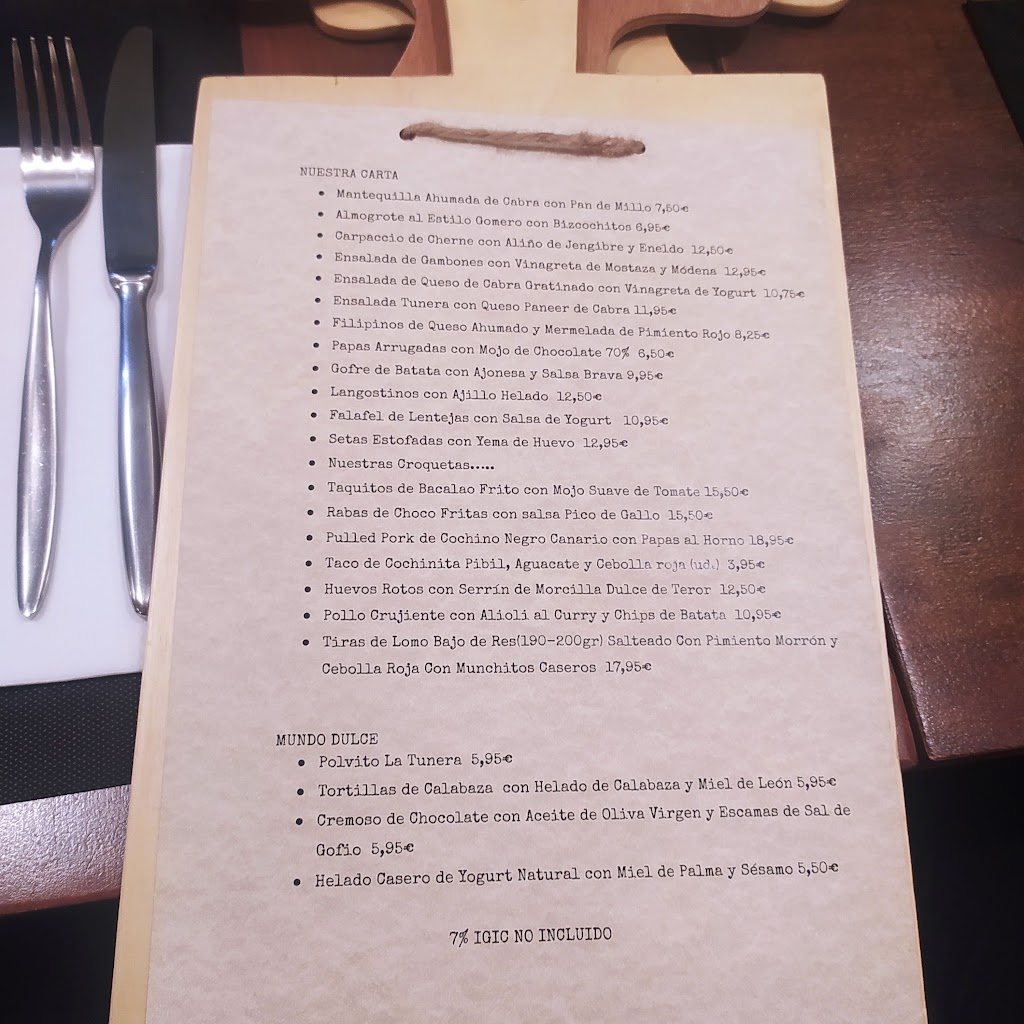 NUESTRA CARTA
• Mantequilla Ahumada de Cabra con Pan de Millo 7,50€
• Almogrote al Estilo Gomero con Bizcochitos 6,95€
• Carpaccio de Cherne con Aliño de Jengibre y Eneldo 12,50€
• Ensalada de Gambones con Vinagreta de Mostaza y Módena 12,95€
• Ensalada de Queso de Cabra Gratinado con Vinagreta de Yogurt 10,75€
• Ensalada Tunera con Queso Paneer de Cabra 11,95€
• Filipinos de Queso Ahumado y Mermelada de Pimiento Rojo 8,25€
• Papas Arrugadas con Mojo de Chocolate 70% 6,50€
• Gofre de Batata con Ajonesa y Salsa Brava 9,95€
• Langostinos con Ajillo Helado 12,50€
• Falafel de Lentejas con Salsa de Yogurt 10,95€
• Setas Estofadas con Yema de Huevo 12,95€
• Nuestras Croquetas.....
• Taquitos de Bacalao Frito con Mojo Suave de Tomate 15,50€
• Rabas de Choco Fritas con salsa Pico de Gallo 15,50€
• Pulled Pork de Cochino Negro Canario con Papas al Horno 18,95€
• Taco de Cochinita Pibil, Aguacate y Cebolla roja (ud.) 3,95€
• Huevos Rotos con Serrín de Morcilla Dulce de Teror 12,50€
• Pollo Crujiente con Alioli al Curry y Chips de Batata 10,95€
• Tiras de Lomo Bajo de Res(190-200gr) Salteado Con Pimiento Morrón y
Cebolla Roja Con Munchitos Caseros 17,95€
MUNDO DULCE
• Polvito La Tunera 5,95€
• Tortillas de Calabaza con Helado de Calabaza y Miel de León 5,95€
• Cremoso de Chocolate con Aceite de Oliva Virgen y Escamas de Sal de
Gofio 5,95€
• Helado Casero de Yogurt Natural con Miel de Palma y Sésamo 5,50€
7% IGIC NO INCLUIDO